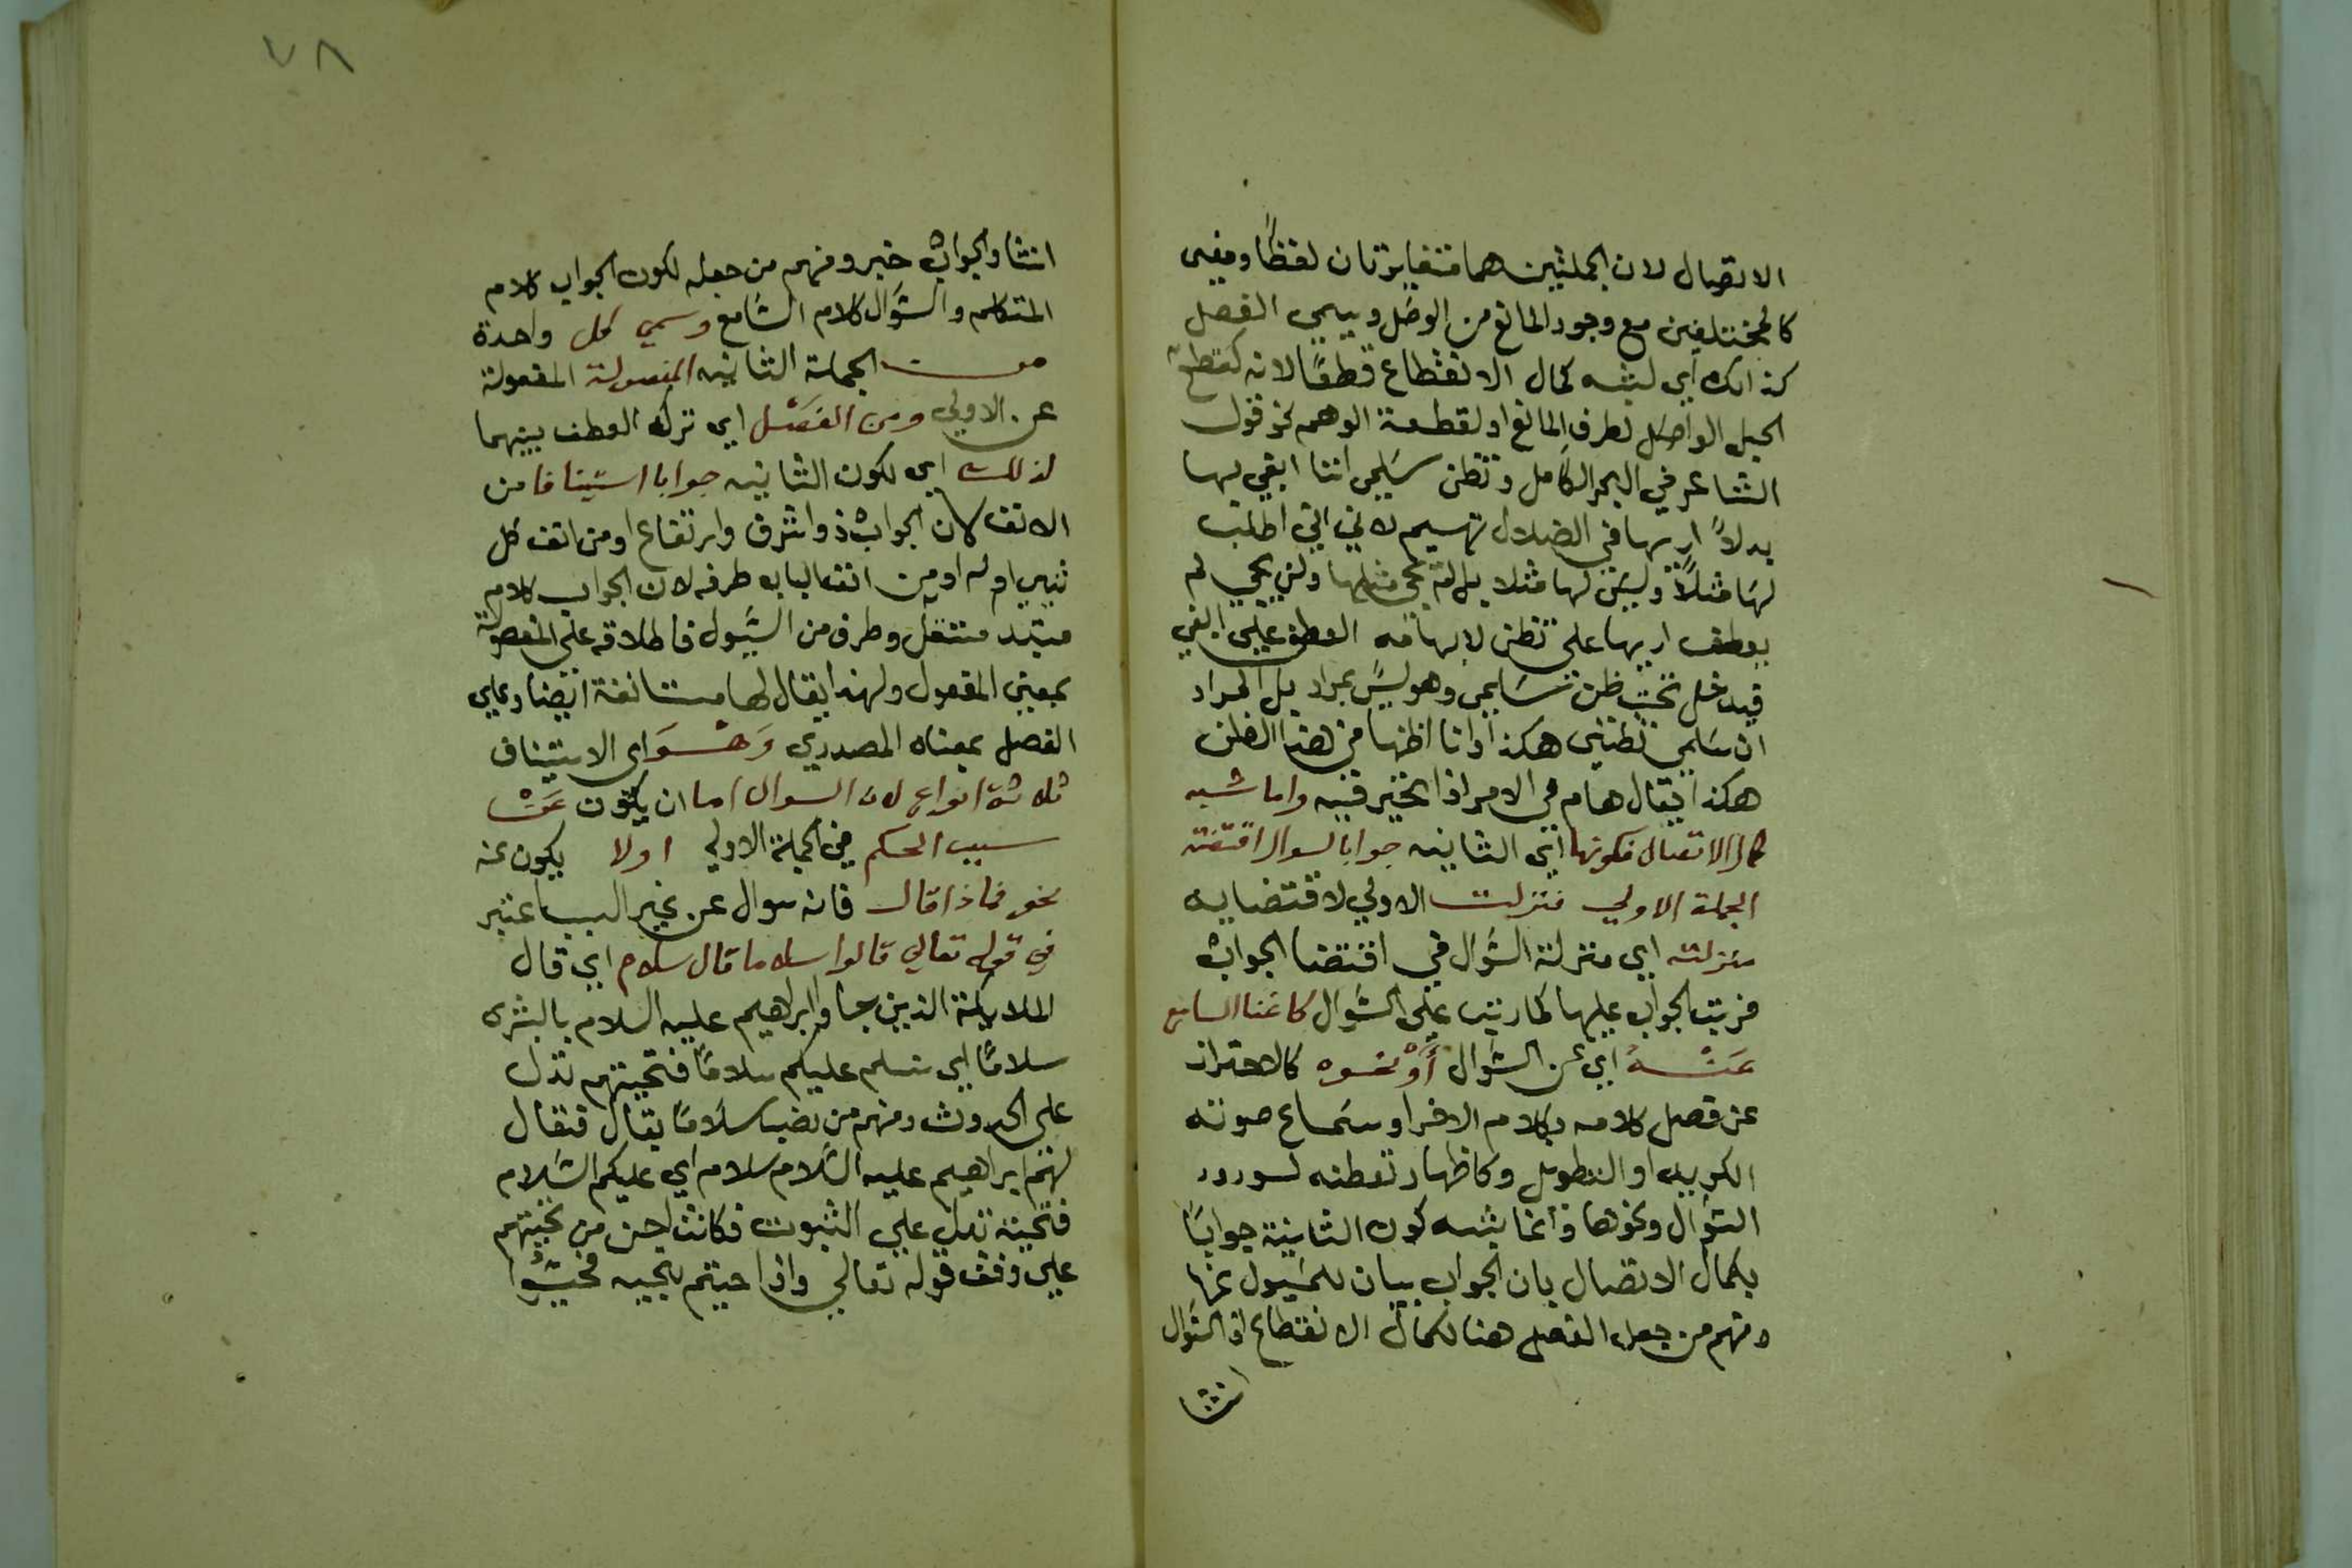 الاتصال لان الجملتين هما متغايرتان لفظًا ومعنى
كالمختلفين مع وجود المانع من الوصل ويسمي الفصل
كذالك اي لشبه كمال الانقطاع قطعًا لانه كقطع
الحبل الواصل لطرف المانع او لقطعة الوهم نحو قول
الشاعر في البحر الكامل وتظن سَلمي اننا ابغي بها
بدلاً اريها في الضلال تهيم لانني التي اطلب
لها مثلاً وليس لها مثلا بل لم يجي مثلها ولن يجي لم
يعطف اريها علي تظن لايهامه العطف علي ابغي
فيدخل تحت ظن سَلمي وهو ليس بمراد بل المراد
ان سَلمي تظنني هكذا وانا اظنها في هذا الظن
هكذا يقال هام في الامر اذا تحير فيه واما شبه
كمال الاتصال فكونها اي الثانيه جوابا لسوال اقتضته
الجملة الاولي فنزلت الاولي لاقتضايه
منزلته اي منزلة السُوال في اقتضا الجواب
فرتب الجواب عليها كما رتب علي السُوال كاغنا السامع
عَنْهُ اي عن السُوال أوْ نحوه كالاحتراز
عن فصل كلامه بكلام الاخر او سَماع صوته
الكريه او التطويل وكاظهار تفطنه لورود
السُوال ونحوها وانما يشبه كون الثانية جوابًا
بكمال الاتصال بان الجواب بيان للمسيول عنها
ومنهم من جعل الفصل هنا لكمال الانقطاع اذ السُوال
انشا
٧٨
انشا والجواب خبر ومنهم من جعله لكون الجواب كلام
المتكلم والسُوال كلام السَامع وسمي كل واحدة
من الجملة الثانيه المفصولة المقصولة
عن الاولي ومن الفصْل اي ترك العطف بينهما
لذلك اي لكون الثانيه جوابا استينافا من
الانف لان الجواب ذو اشرف وارتفاع او من انف كل
شي اوله او من انف الباب طرفه لان الجواب كلام
مبتدا مستقل وطرف من السُيول فاطلاقه علي المفصولة
بمعني المفعول ولهذا يقال لها مستانفة ايضا وعلي
الفصل بمعناه المصدري وَهْوَ اي الاستيناف
ثلاثة انواع لان السوال اما ان يكون عَنْ
سبب الحكم في الجملة الاولي اولا يكون عنه
نحو فماذا قال فانه سوال عن غير السبب اعتبر
في قوله تعالي قالوا سلاما قال سلام اي قال
الملايكة الذين جاوا ابراهيم عليه السلام بالبشرى
سلامًا اي نسلم عليكم سلامًا فتحيتهم تدل
علي الحدوث ومنهم من نصب سلامًا بقال فقال
لهم ابراهيم عليه السَلام سلام اي عليكم السَلام
فتحيته تدل علي الثبوت فكانت احسن من تحيتهم
علي وفق قوله تعالي واذا حييتم بتحيه فحيُّوا